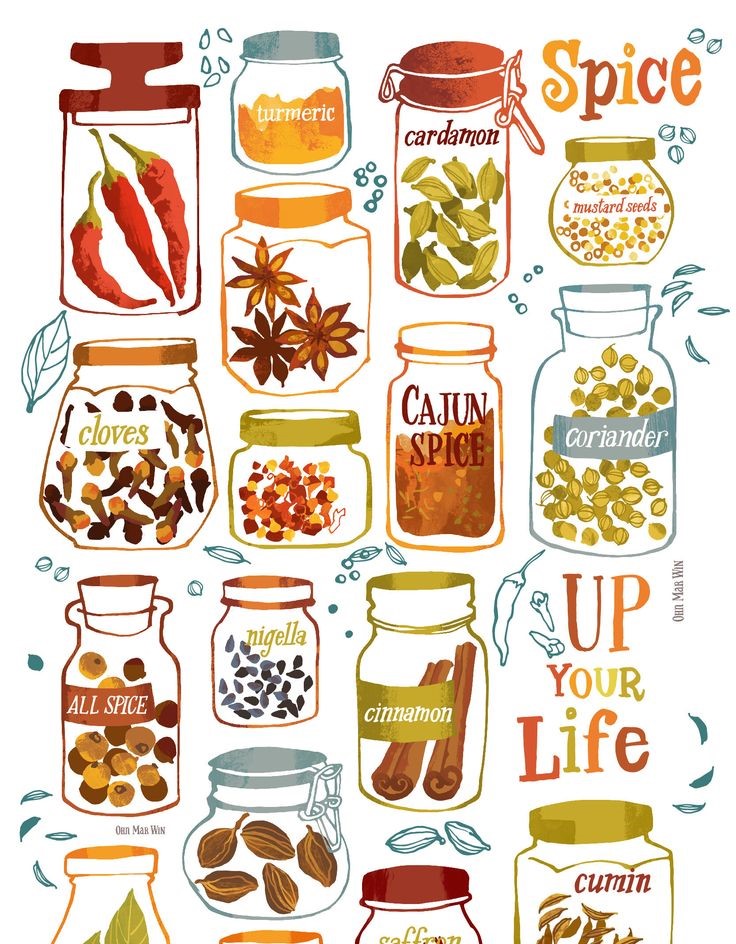 Spice
turmeric
cardamon
mustard seeds
cloves
CAJUN
SPICE
coriander
UP
YOUR
Life
OHN MAR WIN
nigella
ALL SPICE
cinnamon
OHN MAR WIN
cumin
saffron